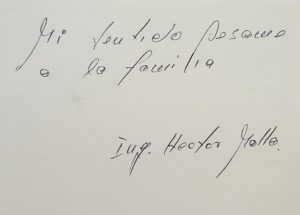 Mi sentido pesame
a la familia
Ing. Hector Malla.